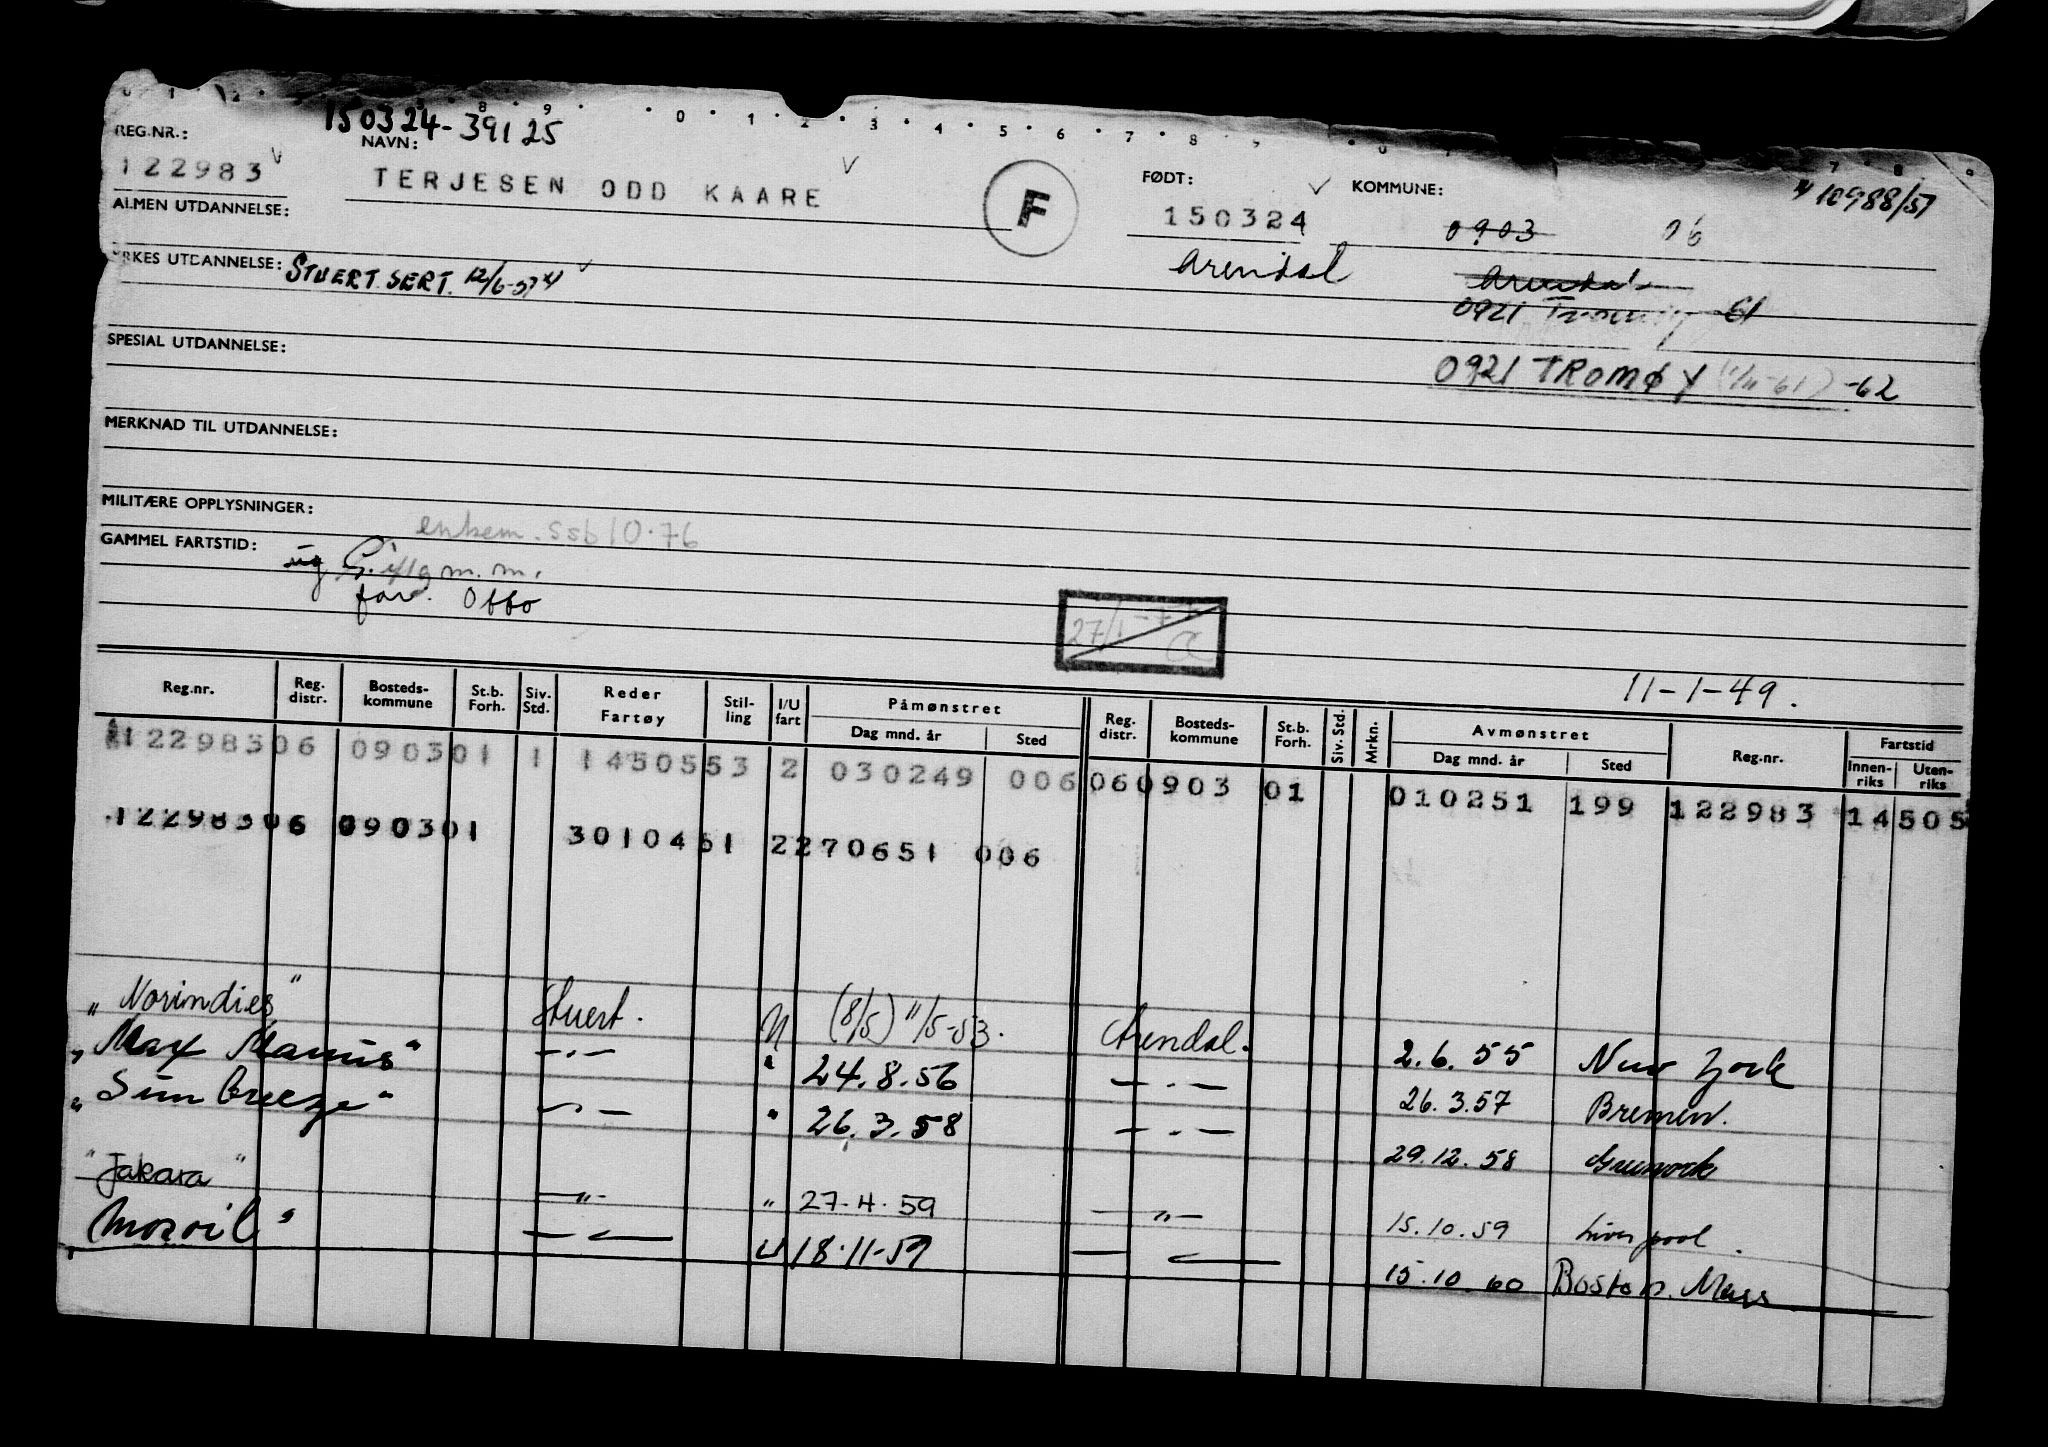 150324-39125
REG.NR.: NAVN: FØDT: KOMMUNE:
122983 TERJESEN ODD KAARE F 150324 0903 06 10988/51
ALMEN UTDANNELSE: Arendal Arendal
YRKES UTDANNELSE: STUERT. SERT. 12/6-57 0921 Tromøy -61
SPESIAL UTDANNELSE:
0921 TROMØY (1/11-61) -62
MERKNAD TIL UTDANNELSE:
MILITÆRE OPPLYSNINGER:
GAMMEL FARTSTID:
m.m.
27/1-77
11-1-49.
Reg.nr. Reg. distr. Bosteds- kommune St.b. Forh. Siv. Std. Reder Fartøy Stil- ling I/U fart Påmønstret Dag mnd. år Sted Reg. distr. Bosteds- kommune St.b. Forh. Siv. Std. Mrkn. Avmønstret Dag mnd. år Sted Reg.nr. Fartstid Innen- riks Uten- riks
122983 06 0903 01 1 1450553 2 030249 006 06 0903 01 010251 199 122983 14 505
122983 06 0903 01 3010461 2 270651 006
"Norindies" Stuert. U (8/5) 11/5-53. Arendal. 2.6.55 New York
"Max Manus" -.- " 24.8.56 -.- 26.3.57 Bremen.
"Sun Breeze" - " 26.3.58 -.- 29.12.58 Greenock
"Jakara" -"- " 27.4.59 -"- 15.10.59 Liverpool.
" U 18.11-59 15.10.60 Boston. Mass